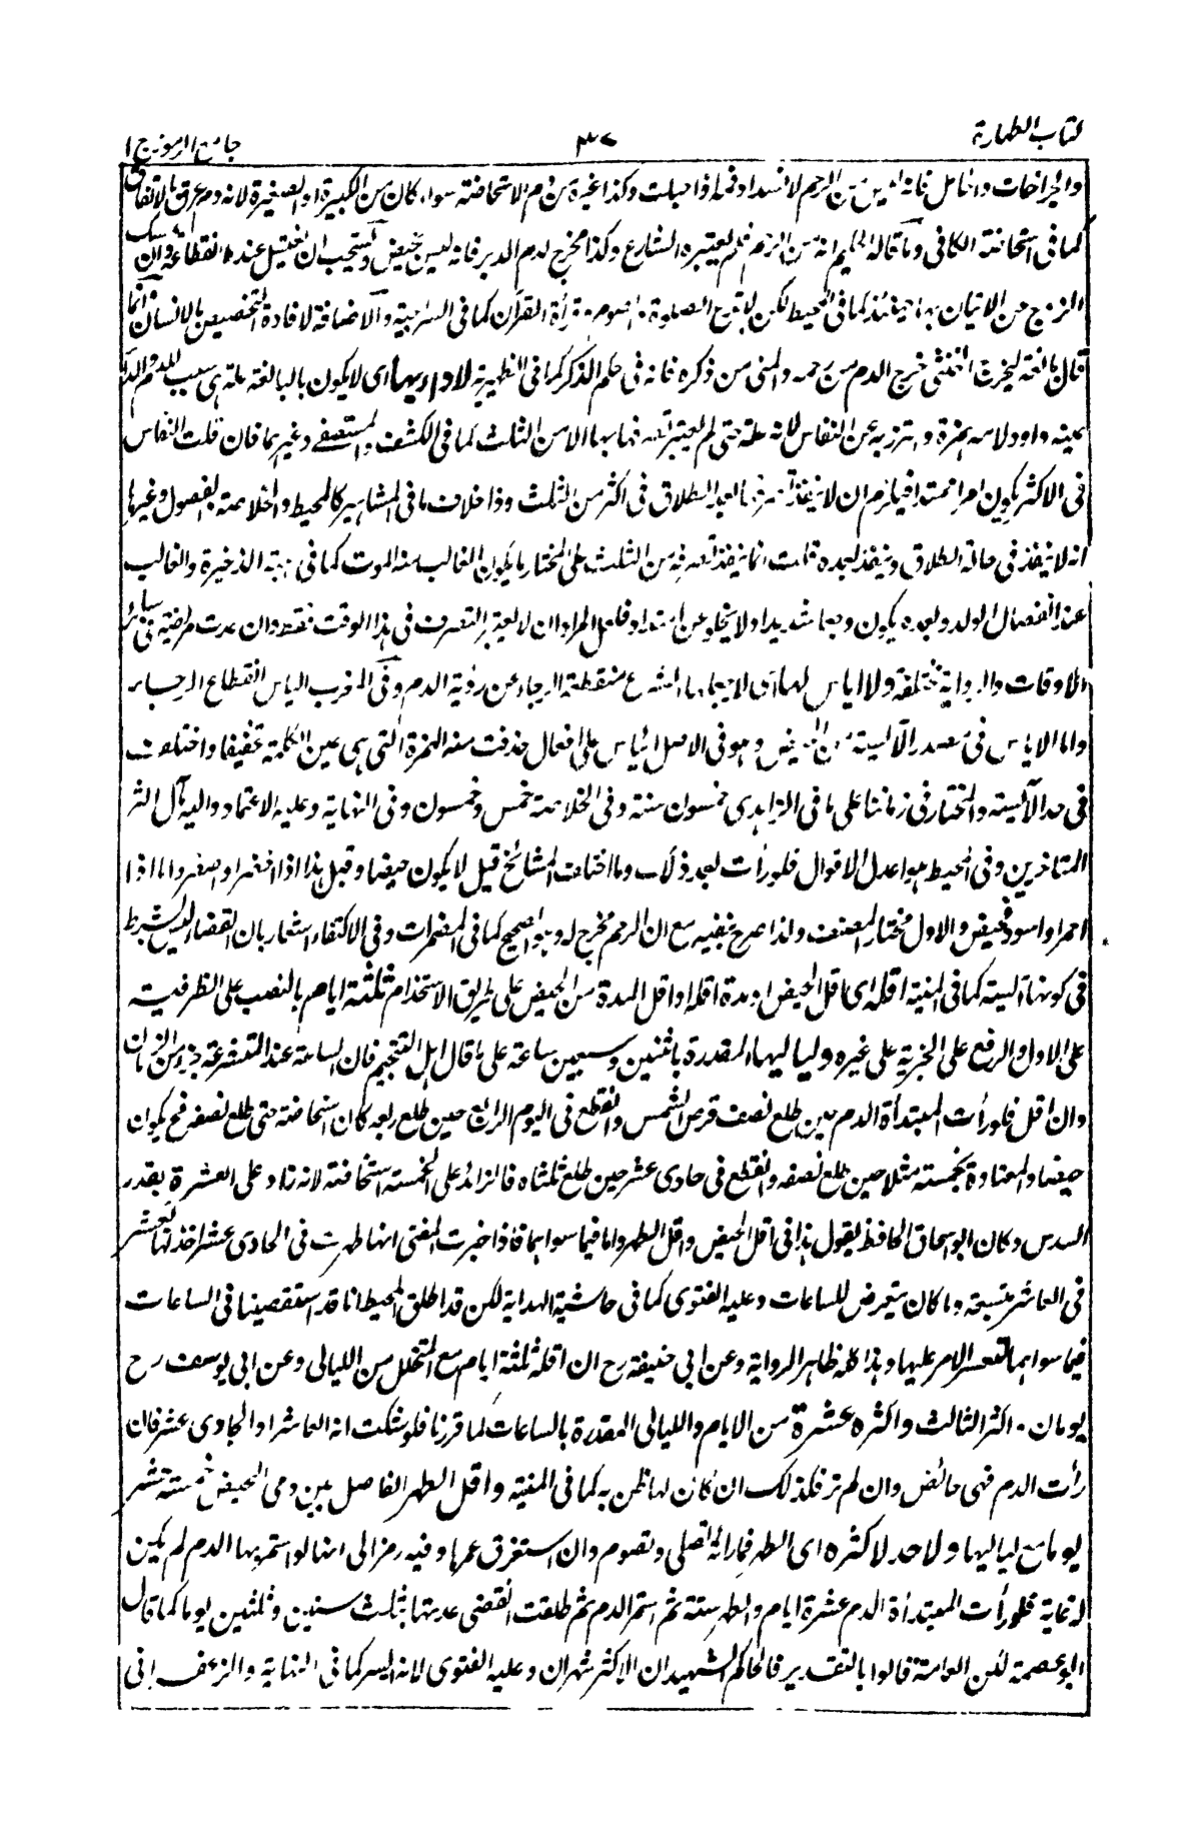 كتاب الطهارة
٣٧
جامع الرموز ج ا
والجراحات والحامل فانه ليس من الرحم لانسداد فمه اذا حبلت وكذا غيره من دم الاستحاضة سواء كان من الكبيرة او الصغيرة لانه دم عرق بالاتفاق
كما فى استحاضة الكافى وما قاله انه من الرحم فلم يعتبره الشارع وكذا مخرج لدم الدبر فانه ليس بحيض ويستحب ان تغتسل عند انقطاعه وان يمسك
الزوج عن الاتيان بها حينئذ كما فى المحيط لكن لا يمنع الصلوة والصوم وقرأة القرآن كما فى السراجية والاضافة لافادة التخصيص بالانسان انما
قال بالغة ليخرج الخنثى خرج الدم من رحمه والمنى من ذكره فانه فى حكم الذكر كما فى الظهيرية لا داء بها اى لا يكون بالبالغة علة هى سبب للدم والداء
بعينه واو ولامه همزة واحترز به عن النفاس لانه علة حتى لم يعتبر تصرفها بها الا من الثلث كما فى الكشف والمستصفى وغيرهما فان قلت النفاس
فى الاكثر يكون امرا ممتدا فيلزم ان لا ينفذ تصرفها بعد الطلاق فى اكثر من الثلث وذا خلاف ما فى المشاهير كالمحيط والخلاصة والفصول وغيرها
انه لا ينفذ فى حالة الطلاق وينفذ بعده قلت انما ينفذ تصرفه من الثلث على المختار ما يكون الغالب منه الموت كما فى هبة الذخيرة والغالب
عند انفصال الولد وبعده يكون وجعا شديدا ولا يخلو عن امتداد فلعل المراد ان لا يعتبر التصرف فى هذا الوقت فقط وان عدت مريضة فى سائر
الاوقات والرواية مختلفة ولا اياس لها اى لا يجعلها الشرع منقطعة الرجاء عن رؤية الدم وفى المغرب الياس انقطاع الرجاء
واما الاياس فى مصدر الآيسة من الحيض وهو فى الاصل ائياس على افعال حذفت منه الهمزة التى هى عين الكلمة تخفيفا واختلف
فى حد الآيسة والمختار فى زماننا على ما فى الزاهدى خمسون سنة وفى الخلاصة خمس وخمسون وفى النهاية وعليه الاعتماد واليه مال اكثر
المتاخرين وفى المحيط هو اعدل الاقوال فلو رأت بعد ذلك دما اختلف المشائخ قيل لا يكون حيضا وقيل هذا اذا اخضر او اصفر واما اذا
احمر او اسود فحيض والاول مختار المصنف ولذا صرح بنفيه مع ان الرحم مخرج له وهو الصحيح كما فى المضمرات وفى الاكتفاء اشعار بان القضاء ليس بشرط
فى كونها آيسة كما فى المنية اقله اى اقل الحيض او مدة اقله او اقل المدة من الحيض على طريق الاستخدام ثلثة ايام بالنصب على الظرفية
على الاول والرفع على الخبرية على غيره ولياليها المقدرة باثنين وسبعين ساعة على ما قال اهل التنجيم فان الساعة عند المتشرعة جزء من الزمان
وان اقل فلو رأت المبتدأة الدم حين طلع نصف قرص الشمس وانقطع فى اليوم الرابع حين طلع ربعه كان استحاضة حتى طلع نصفه فح يكون
حيضا والمعتادة بخمسة مثلا حين طلع نصفه وانقطع فى حادى عشر حين طلع ثلثاه فالزائد على الخمسة استحاضة لانه زاد على العشرة بقدر
السدس وكان ابو اسحاق الحافظ يقول هذا فى اقل الحيض واقل الطهر واما فيما سواهما فاذا اخبرت المفتى انها طهرت فى الحادى عشر اخذ لها بعشر
فى العاشر بتسعة وما كان يتعرض للساعات وعليه الفتوى كما فى حاشية الهداية لكن قد اطلق المحيط انا قد استقصينا فى الساعات
فيما سواهما لتعسر الامر عليها وهذا كله ظاهر الرواية وعن ابى حنيفة رح ان اقله ثلثة ايام مع المتخلل من الليالى وعن ابى يوسف رح
يومان واكثر الثالث واكثره عشرة من الايام والليالى المقدرة بالساعات لما قررنا فلو شكت انه العاشر او الحادى عشر فان
رأت الدم فهى حائض وان لم تر فكذلك ان كان لها ظن به كما فى المنية واقل الطهر الفاصل بين دمى الحيض خمسة عشر
يوما مع لياليها ولا حد لاكثره اى الطهر فما رائه تصلى وتصوم وان استغرق عمرها وفيه رمز الى انها لو استمر بها الدم لم يكن
له غاية فلو رأت المبتدأة الدم عشرة ايام والطهر ستة ثم استمر الدم ثم طلقت انقضى عدتها بثلث سنين وثلثين يوما كما قال
ابو عصمة لكن العامة قالوا بالتقدير فالحاكم الشهيد ان الاكثر شهران وعليه الفتوى لانه اليسر كما فى النهاية والزعفرانى